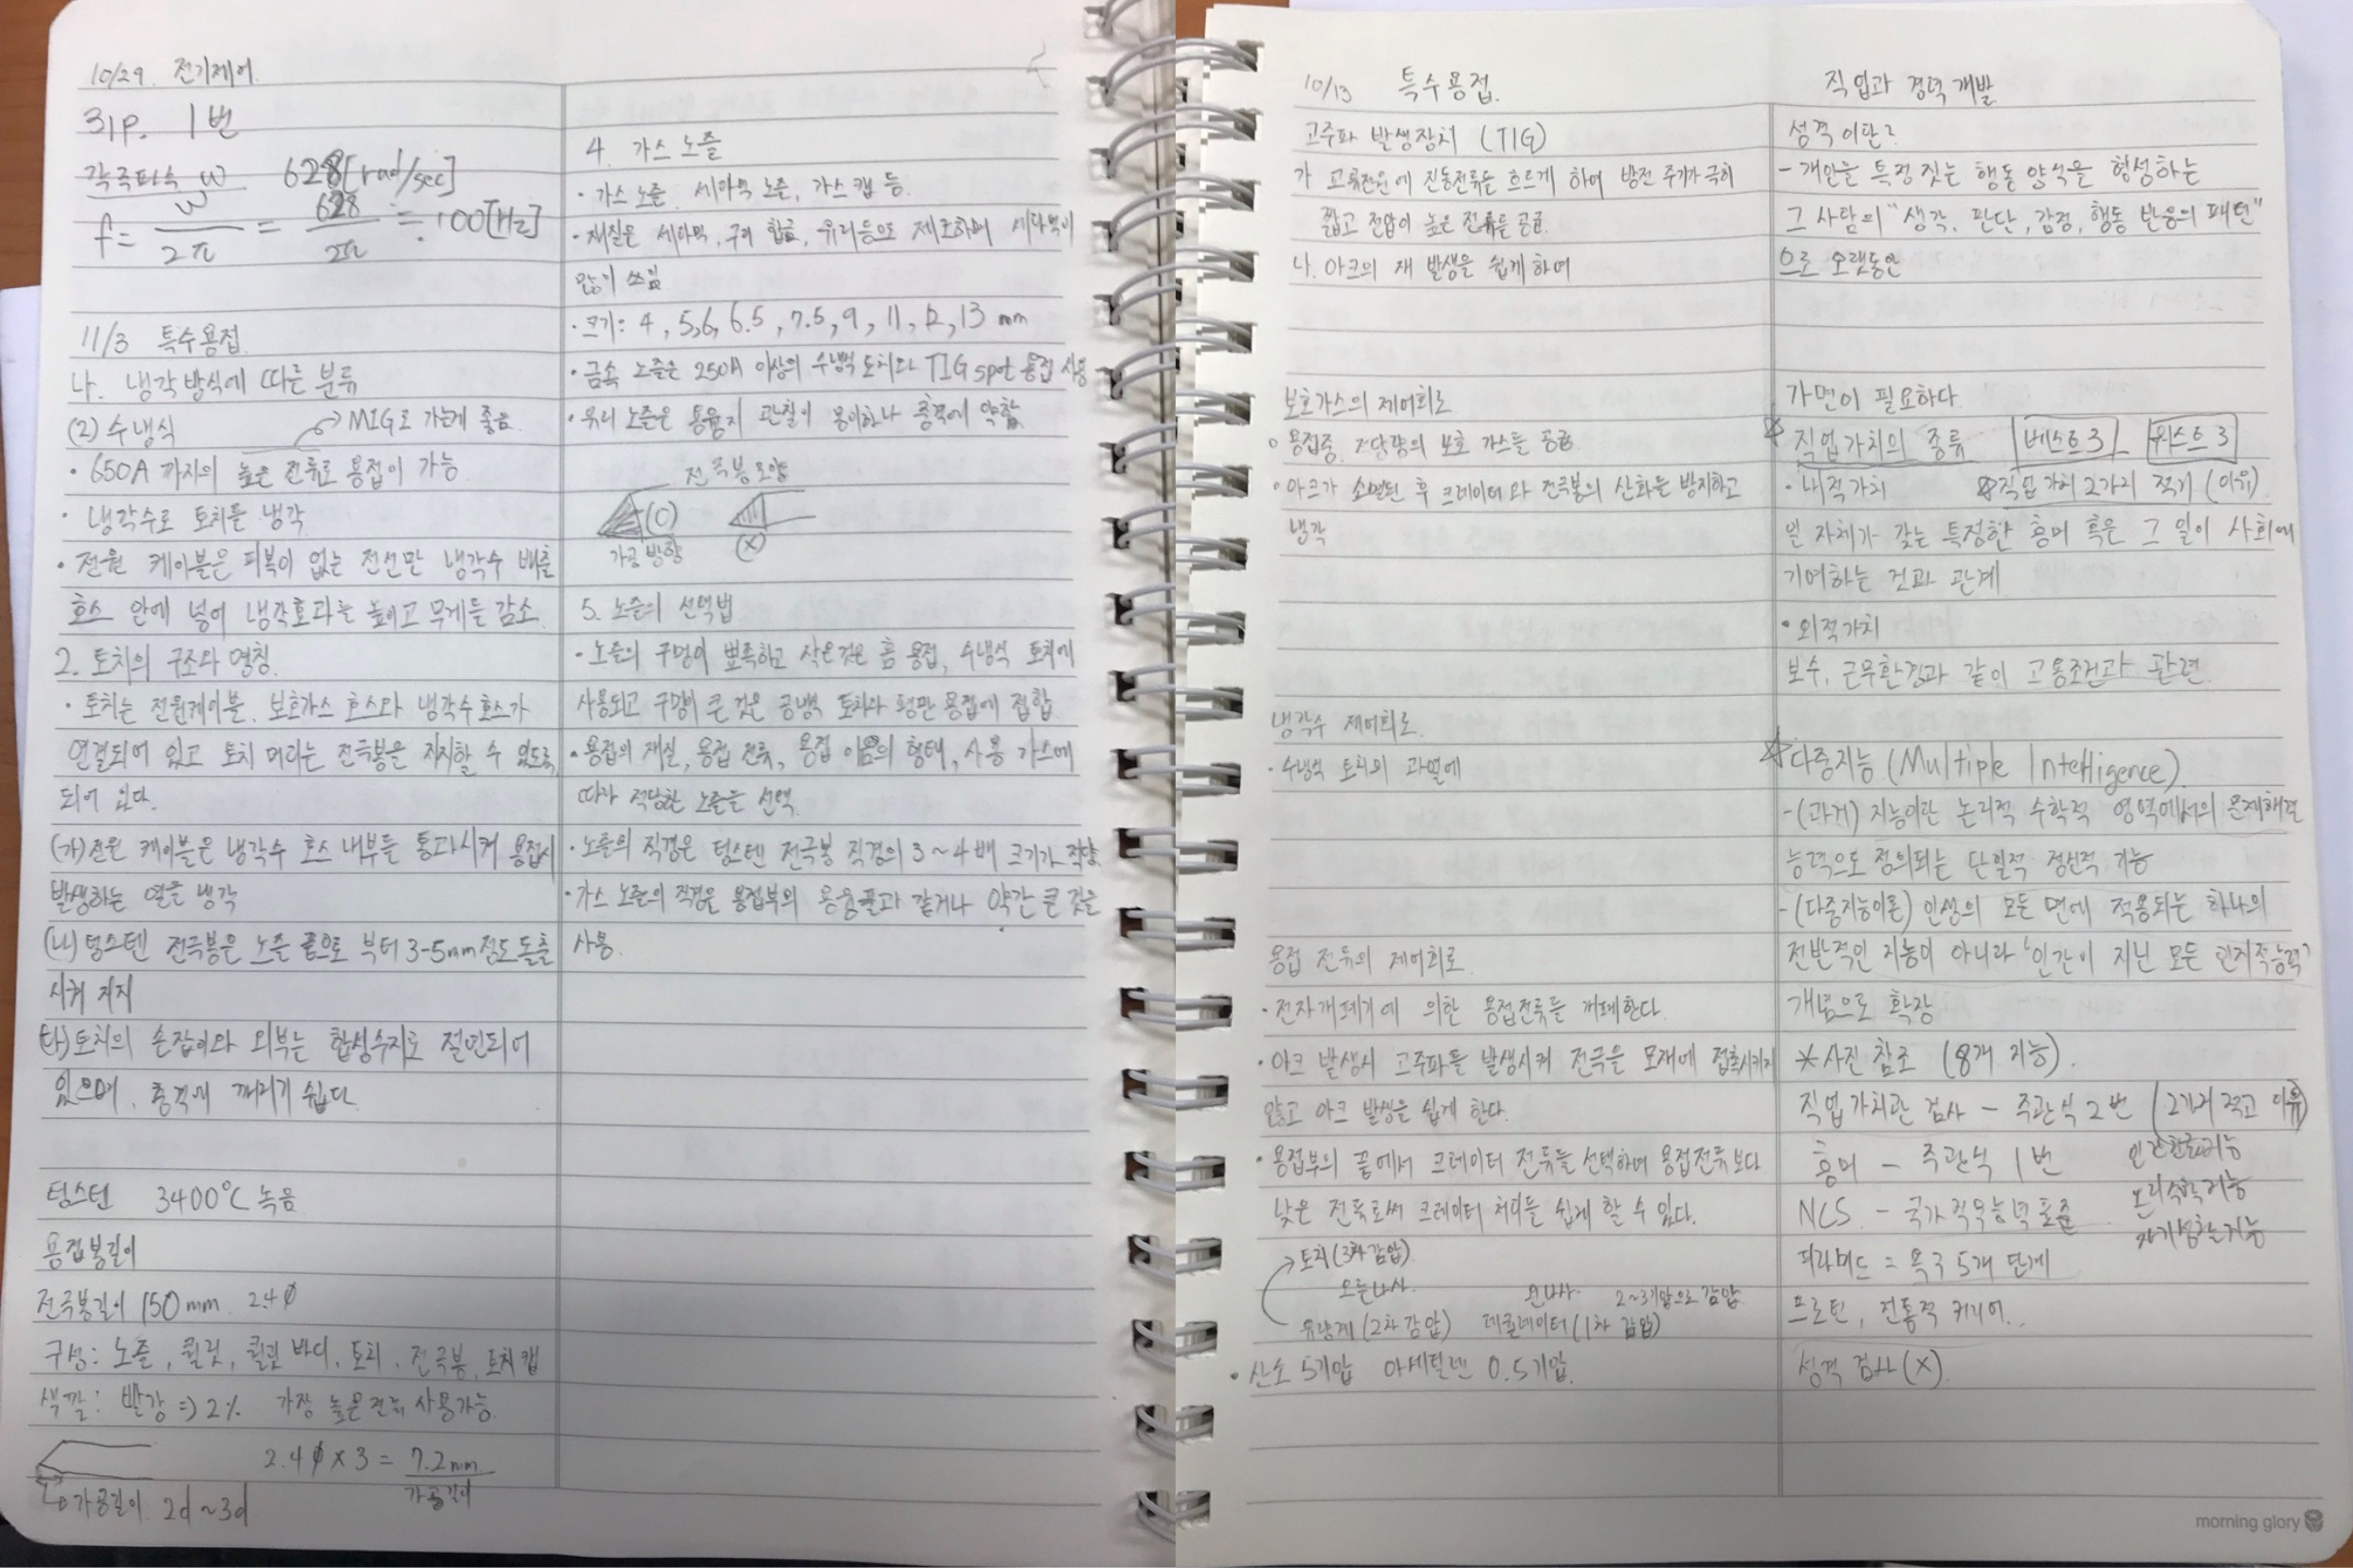 10/29. 전기제어
31p. 1번
각주파수 w 628[rad/sec]
f = w/2π = 628/2π ≒ 100[Hz]
11/3 특수용접
나. 냉각방식에 따른 분류
(2) 수냉식 → MIG로 가는게 좋음
· 650A 까지의 높은 전류로 용접이 가능
· 냉각수로 토치를 냉각
· 전원 케이블은 피복이 없는 전선만 냉각수 배출
호스 안에 넣어 냉각효과를 높이고 무게를 감소.
2. 토치의 구조와 명칭.
· 토치는 전원케이블, 보호가스 호스와 냉각수호스가
연결되어 있고 토치 머리는 전극봉을 지지할 수 있도록
되어 있다.
(가) 전원 케이블은 냉각수 호스 내부를 통과시켜 용접시
발생하는 열을 냉각
(나) 텅스텐 전극봉은 노즐 끝으로 부터 3-5mm 정도 돌출
시켜 지지
(다) 토치의 손잡이와 외부는 합성수지로 절연되어
있으며, 충격에 깨지기 쉽다.
텅스턴 3400°C 녹음
용접봉길이
전극봉길이 150mm 2.4ϕ
구성: 노즐, 콜릿, 콜릿 바디, 토치, 전극봉, 토치캡
색깔: 빨강 => 2% 가장 높은 전류 사용가능.
2.4ϕ x 3 = 7.2mm
가공길이
↳ 가공길이 2d ~ 3d
4. 가스 노즐
· 가스 노즐, 세라믹 노즐, 가스 캡 등.
· 재질은 세라믹, 구리 합금, 유리등으로 제조하며 세라믹이
많이 쓰임
· 크기: 4, 5, 6, 6.5, 7.5, 9, 11, 12, 13 mm
· 금속 노즐은 250A 이상의 수냉식 토치와 TIG spot 용접 사용
· 유리 노즐은 용융지 관찰이 용이하나 충격에 약함
전극봉모양
(O) (X)
가공 방향
5. 노즐의 선택법
· 노즐의 구멍이 뾰족하고 작은것은 홈 용접, 수냉식 토치에
사용되고 구멍이 큰 것은 공냉식 토치와 평판 용접에 접합
· 용접의 재질, 용접 전류, 용접 이음의 형태, 사용 가스에
따라 적당한 노즐을 선택
· 노즐의 직경은 텅스텐 전극봉 직경의 3~4배 크기가 적당
· 가스 노즐의 직경은 용접부의 용융풀과 같거나 약간 큰 것을
사용.
10/13 특수용접.
고주파 발생장치 (TIG)
가 교류전원에 진동전류를 흐르게 하여 방전 주기가 극히
짧고 전압이 높은 전류를 공급.
나. 아크의 재 발생을 쉽게 하며
보호가스의 제어회로
◦ 용접중, 적당량의 보호 가스를 공급
◦ 아크가 소멸된 후 크레이터와 전극봉의 산화를 방지하고
냉각
냉각수 제어회로
· 수냉식 토치의 과열에
용접 전류의 제어회로
· 전자개폐기에 의한 용접전류를 개폐한다.
· 아크 발생시 고주파를 발생시켜 전극을 모재에 접촉시키지
않고 아크 발생을 쉽게 한다.
· 용접부의 끝에서 크레이터 전류를 선택하며 용접전류보다
낮은 전류로써 크레이터 처리를 쉽게 할 수 있다.
토치(3차 감압)
오른나사 왼나사 2~3기압으로 감압
유량계 (2차 감압) 레귤레이터 (1차 감압)
· 산소 5기압 아세틸렌 0.5기압.
직업과 경력개발
성격이란?
- 개인을 특정 짓는 행동 양식을 형성하는
그 사람의 "생각, 판단, 감정, 행동 반응의 패턴"
으로 오랫동안
가면이 필요하다.
☆ 직업가치의 종류 베스트3 워스트3
· 내적가치 ☆직업 가치 2가지 적기 (이유)
일 자체가 갖는 특정한 흥미 혹은 그 일이 사회에
기여하는 것과 관계
· 외적가치
보수, 근무환경과 같이 고용조건과 관련.
☆ 다중지능 (Multiple Intelligence)
- (과거) 지능이란 논리적 수학적 영역에서의 문제해결
능력으로 정의되는 단일적 정신적 기능
- (다중지능이론) 인생의 모든 면에 적용되는 하나의
전반적인 지능이 아니라 '인간이 지닌 모든 인지적능력'
개념으로 확장
* 사진 참조 (8개 지능).
직업가치관 검사 - 주관식 2번 (2가지 적고 이유)
흥미 - 주관식 1번 인간친화지능
NCS - 국가직무능력표준 논리수학지능
자기성찰지능
피라미드 = 욕구 5개 단계
프로틴, 전통적 커리어.
성격 검사 (X).
morning glory